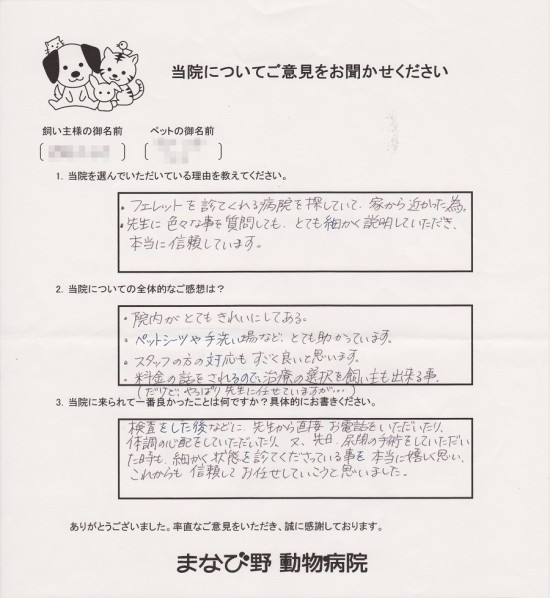 当院についてご意見をお聞かせください
飼い主様の御名前 ペットの御名前
1. 当院を選んでいただいている理由を教えてください。
・フェレットを診てくれる病院を探していて、家から近かった為。
・先生に色々な事を質問しても、とても細かく説明していただき、
本当に信頼しています。
2. 当院についての全体的なご感想は?
・院内がとてもきれいにしてある。
・ペットシーツや手洗い場など、とても助かっています。
・スタッフの方の対応もすごく良いと思います。
・料金の話をされるので、治療の選択を飼い主も出来る事。
(だけど、やっぱり先生に任せていますが…)
3. 当院に来られて一番良かったことは何ですか?具体的にお書きください。
検査をした後などに、先生から直接お電話をいただいたり、
体調の心配をしていただいたり、又、先日、尿閉の手術をしていただい
た時も、細かく状態を診てくださっている事を本当に嬉しく思い、
これからも信頼してお任せしていこうと思いました。
ありがとうございました。率直なご意見をいただき、誠に感謝しております。
まなび野 動物病院